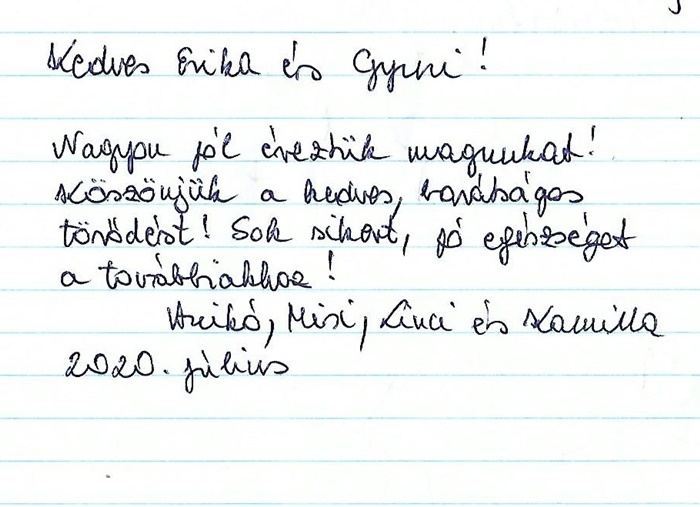 Kedves Erika és Gyuri!
Nagyon jól éreztük magunkat!
Köszönjük a kedves, barátságos
törődést! Sok sikert, jó egészséget
a továbbiakhoz!
Anikó, Misi, Linci és Kamilla
2020. július